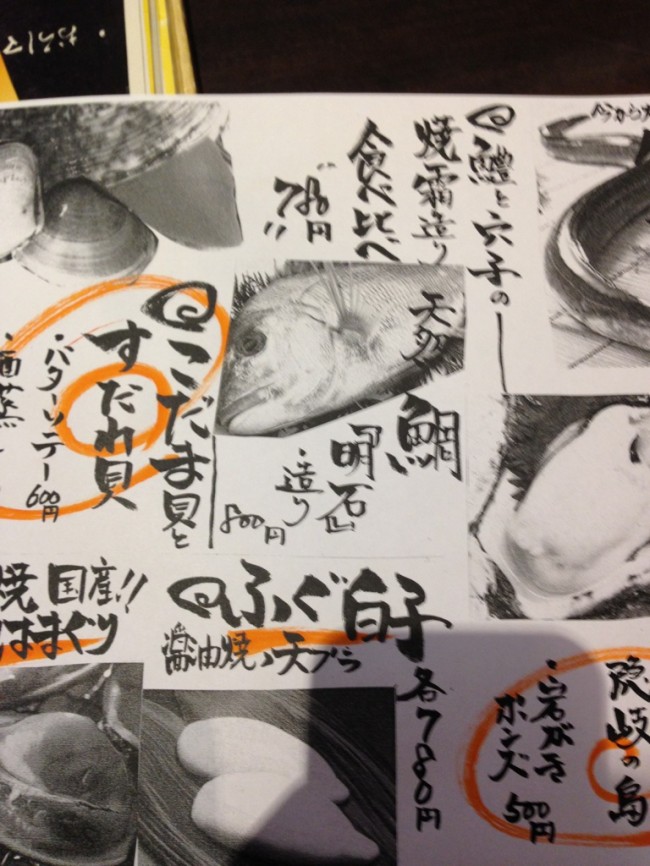 今から
鱧と穴子の
焼霜造り
食べ比べ
780円!!
天然
鯛
『明石』
・造り
800円
こだま貝と
すだれ貝
・バターソテー
600円
ふぐ白子
醤油焼、天ブラ
各780円
隠岐の島
・岩がき
ポンズ
500円
焼 国産!!
はまぐり